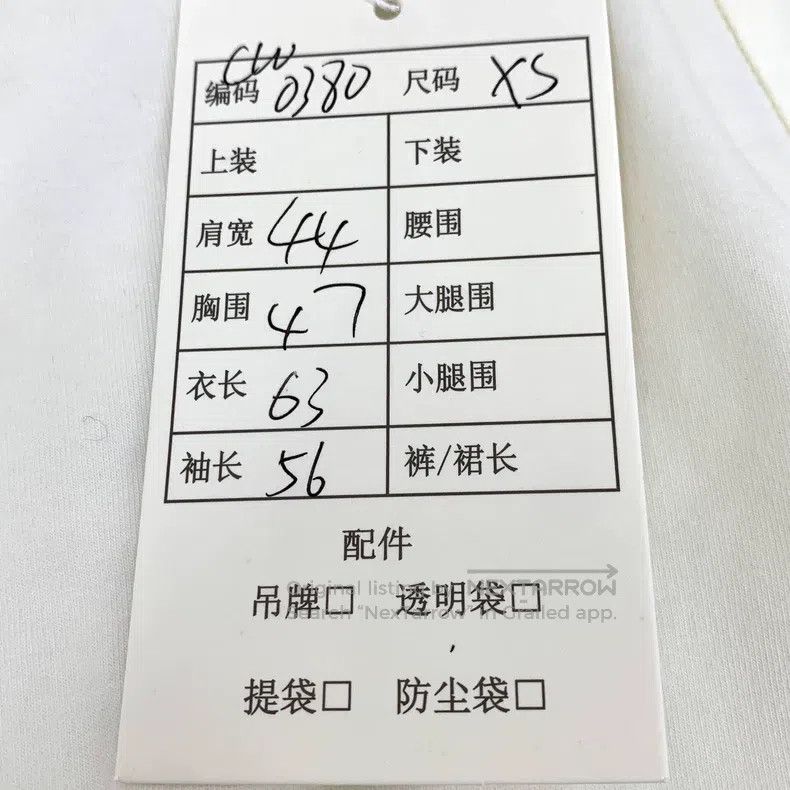 编码 CW0380 尺码 XS
上装 下装
肩宽 44 腰围
胸围 47 大腿围
衣长 63 小腿围
袖长 56 裤/裙长
配件
Original listing by NEXTARROW
吊牌□ 透明袋□
Search "NexTarrow" in Grailed app.
提袋□ 防尘袋□